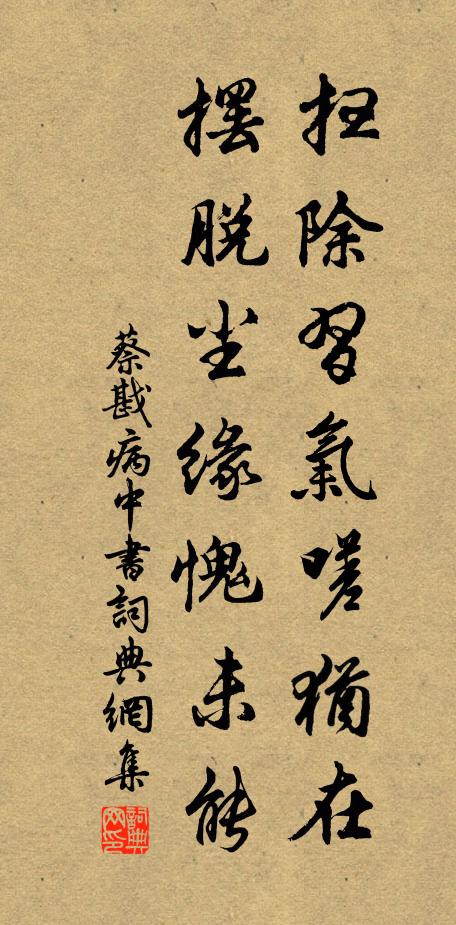 掃除習氣嗟猶在
擺脫塵緣愧未能
蔡戡病中書詞典網集
詞典網印